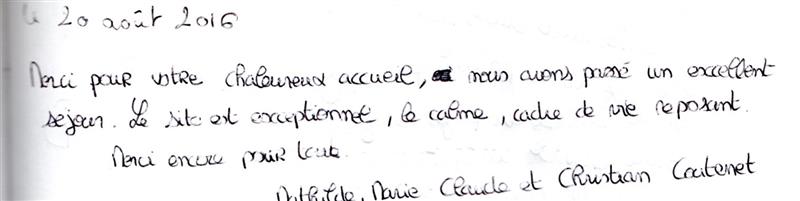 le 20 août 2016
Merci pour votre chaleureux accueil, nous avons passé un excellent
sejour. Le site est exceptionnel, le calme, cadre de vie reposant.
Merci encore pour tout.
Mathilde, Marie Claude et Christian